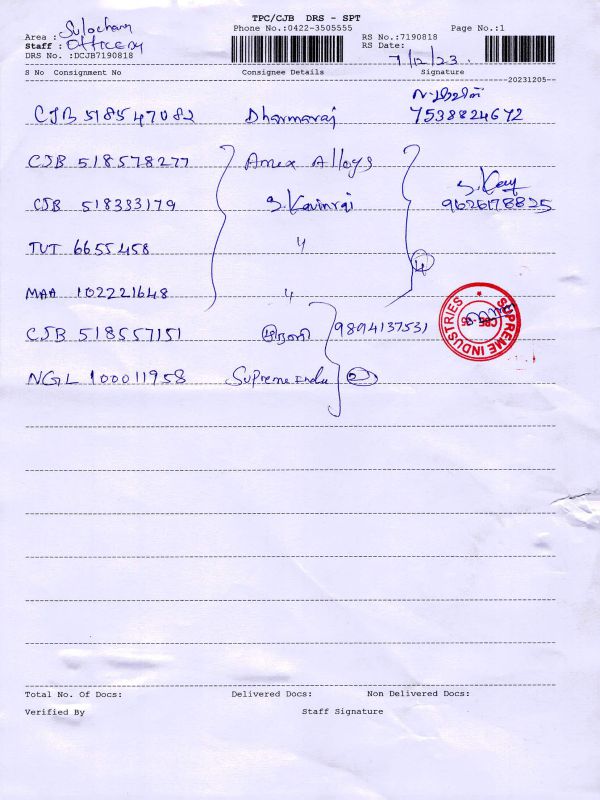 TPC/CJB DRS - SPT
Phone No.:0422-3505555
RS No.:7190818
Page No.:1
Area : Sulochana
Staff :
RS Date: 7/12/23
DRS No. :DCJB7190818
S No Consignment No Consignee Details Signature
20231205
CJB 518547082 Dharmaraj 7538824672
CJB 518578277 Amex Alloys
CJB 518333179 S. Kavinraj S. Kavi 9626178825
TUT 6655458 "
4
MAA 102221648 "
CJB 518557151 9894137531
SUPREME INDUSTRIES
CBE
NGL 100011958 Supreme Indu 2
Total No. Of Docs: Delivered Docs: Non Delivered Docs:
Verified By Staff Signature